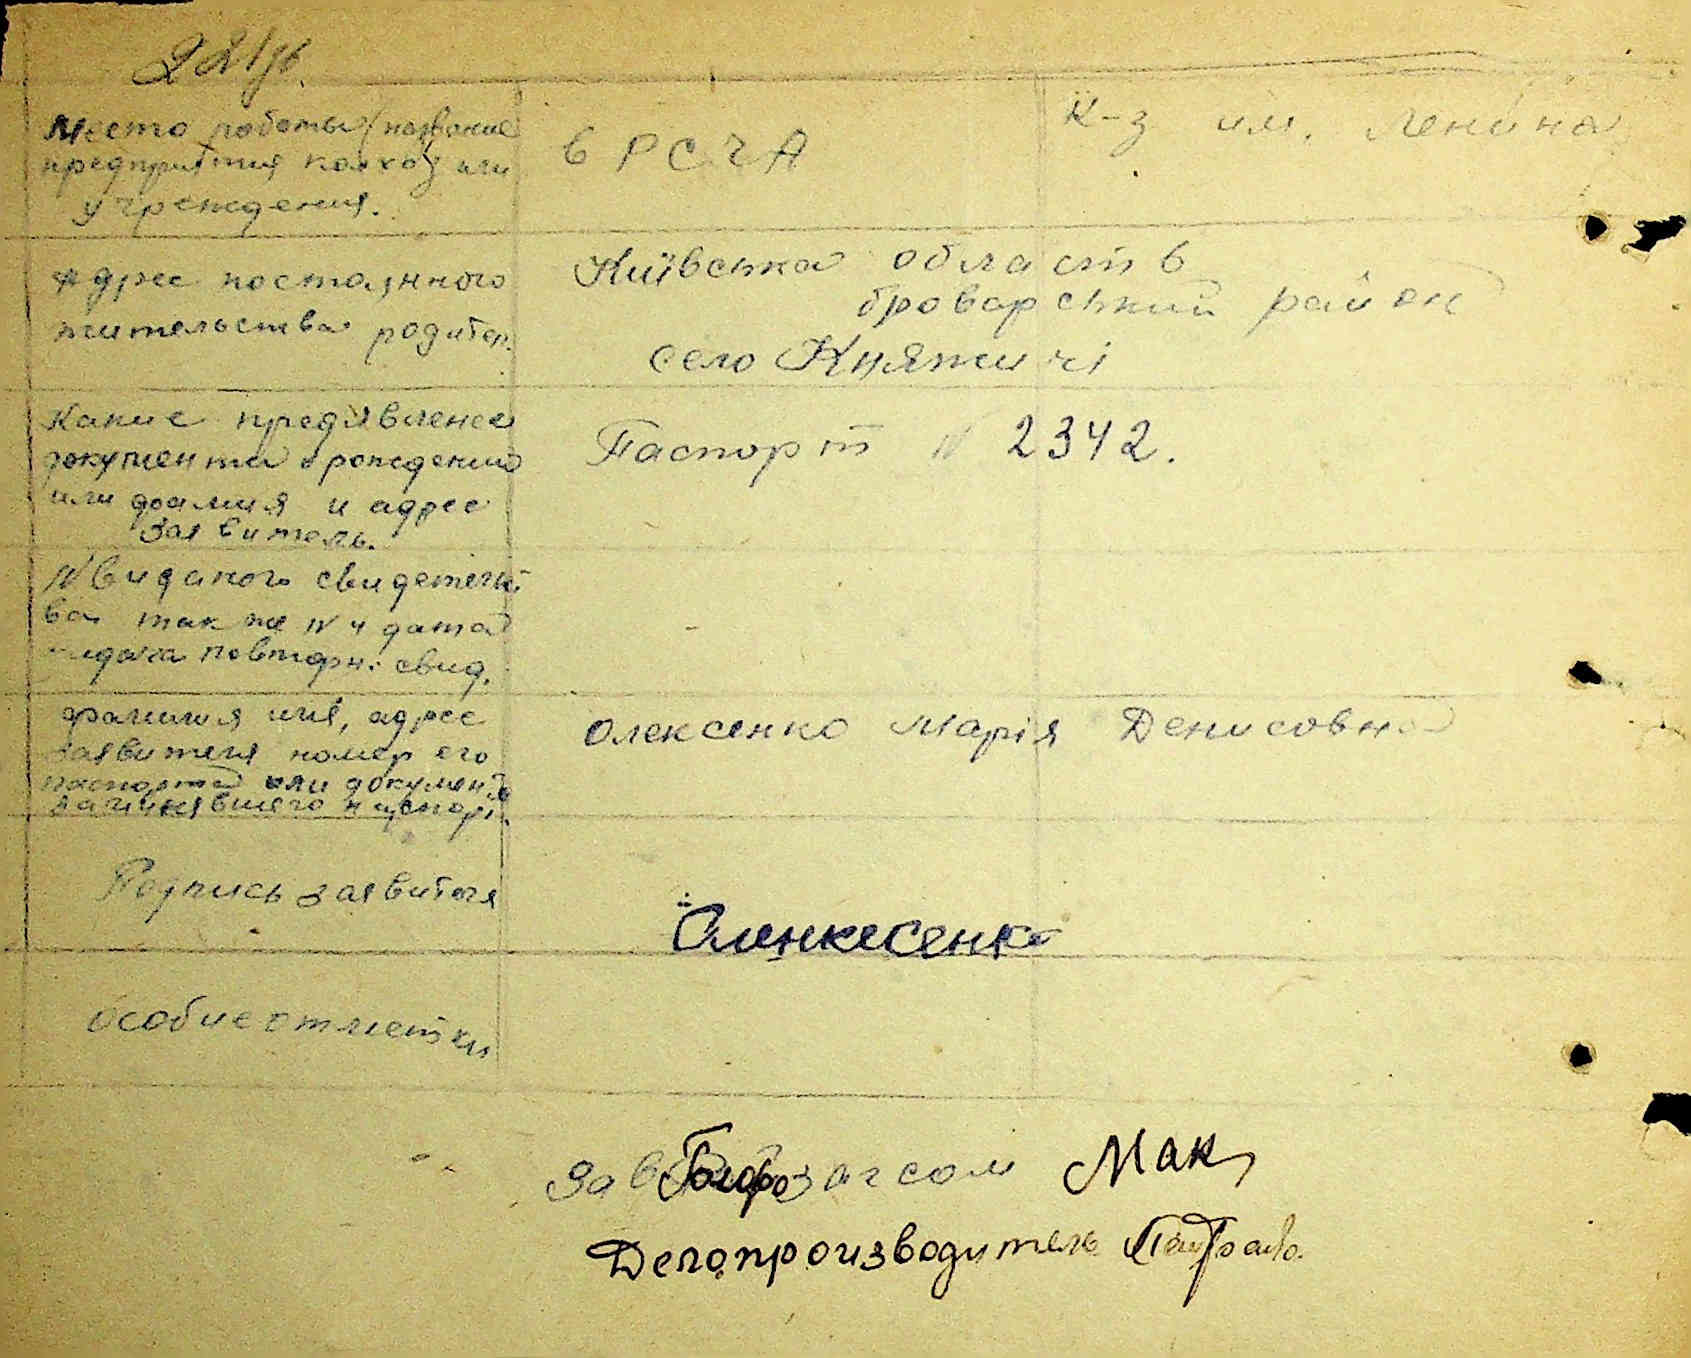 Место работы (название
предприятия колхоз или
учреждения.
в РСЧА
к-з им. Ленина
Адрес постоянного
жительства родител.
Київська область
броварський район
село Княжичі
Какие предявлена
документа о рождении
или фамия и адрес
заявитель.
Паспорт № 2342.
№ виданого свидетельст
ва так же № и дата
повторн. свид.
фамилия имя, адрес
заявителя номер его
паспорта или документ
Олексенко Марія Денисовна
Подпись заявителя
Оленкесенко
Особие отметки
Зав загсом Мак
Делопроизводитель